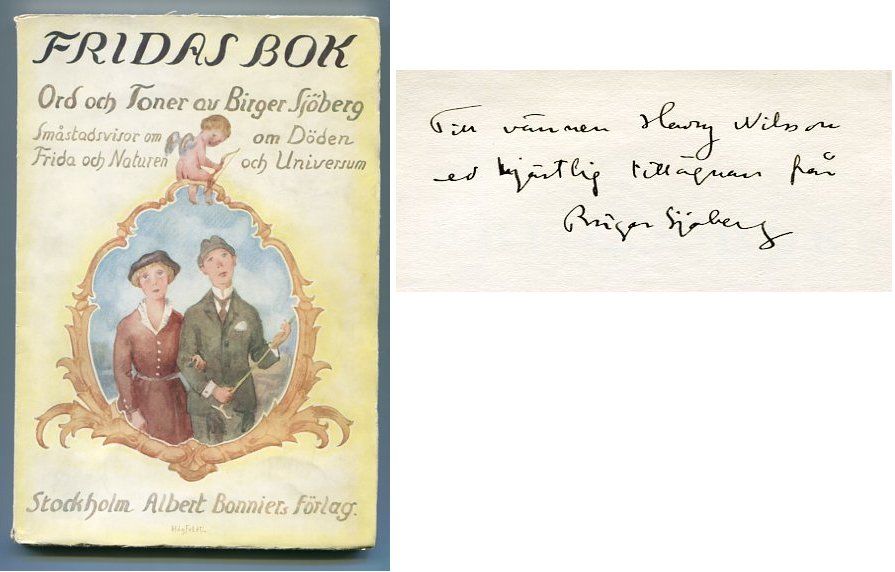 FRIDAS BOK
Ord och Toner av Birger Sjöberg
Småstadsvisor om om Döden
Frida och Naturen och Universum
Stockholm Albert Bonniers Förlag.
Till vännen Harry Nilsson
ed hjärtlig tillägnan från
Birger Sjöberg